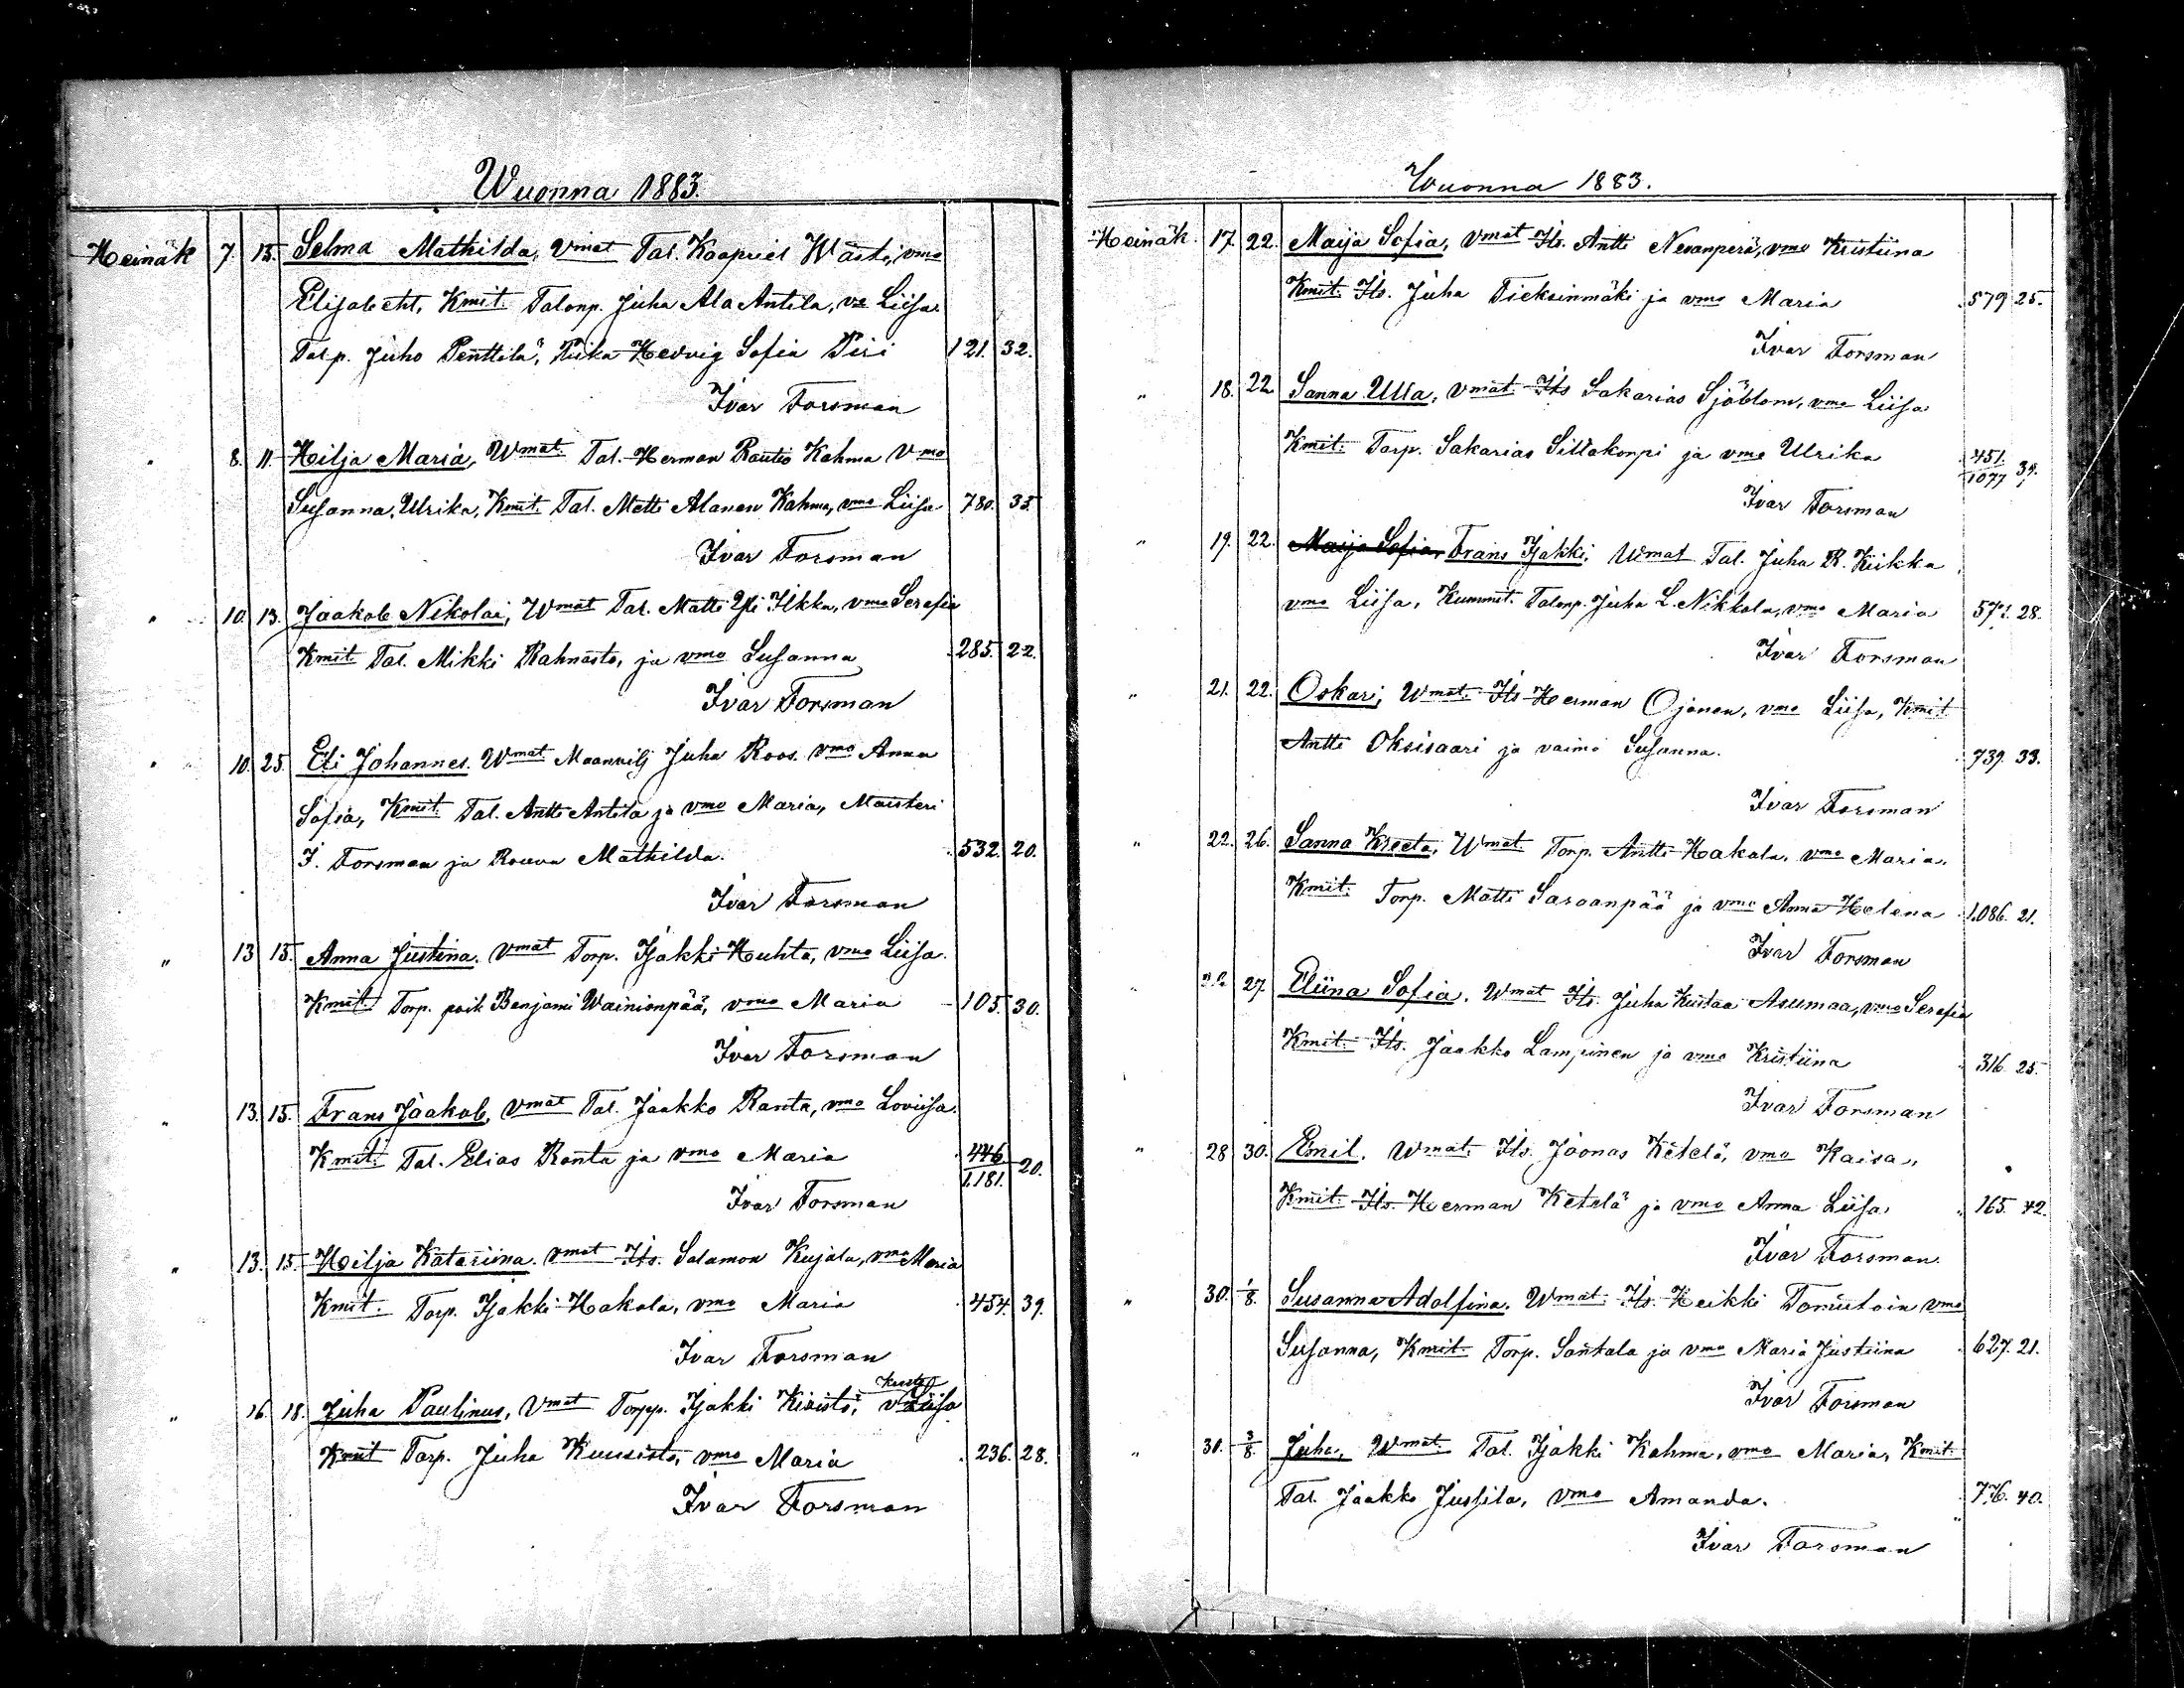 Wuonna 1883.
Heinäk 7. 15. Selma Mathilda, Vmat Tal. Kaapriel Wästi, vmo
Elisabeht, Kmit. Talonp. Juha Ala Antila, va Liisa
Talp. Juho Penttilä, Piika Hedvig Sofia Piri 121. 32.
Ivar Forsman
" 8. 11. Hilja Maria, Wmat. Tal. Herman Rautio Kahma Vmo
Susanna Ulrika, Kmit. Tal. Matti Alanen Kahma, vmo Liisa 780. 35.
Ivar Forsman
" 10. 13. Jaakob Nikolai, Wmat Tal. Matti Yli Ilkka, vmo Serafia
Kmit Tal. Mikki Rahnasto, ja vmo Susanna 285. 22.
Ivar Forsman
" 10. 25. Eli Johannes. Wmat. Maanvilj Juha Roos. Vmo Anna
Sofia, Kmit. Tal. Antti Antila ja vmo Maria, Maisteri
I. Forsman ja Rouva Mathilda. 532. 20.
Ivar Forsman
" 13 15. Anna Justina. Vmat Torp. Jjakki Huhta, vmo Liisa.
Kmit. Torp. poik Benjami Wainionpää, vmo Maria 105. 30.
Ivar Forsman
" 13. 15. Frans Jaakob, Vmat Tal. Jaakko Ranta, vmo Loviisa.
Kmit. Tal. Elias Ranta ja vmo Maria 446 1,181. 20.
Ivar Forsman
" 13. 15. Hilja Katariina. Vmat Its. Salamon Kujala, vmo Maria
Kmit. Torp. Jjakki Hakola, vmo Maria 454. 39.
Ivar Forsman
" 16. 18. Juha Paulinus, Vmat Torpp. Jjakki Kivistö, v Liisa
Kmit Torp. Juha Kuusisto, vmo Maria 236. 28.
Ivar Forsman
Wuonna 1883.
Heinäk. 17. 22. Maija Sofia, Vmat Its. Antti Nevanperä, vmo Kristiina
Kmit. Its. Juha Tieksinmäki ja vmo Maria 579 25.
Ivar Forsman
" 18. 22 Sanna Ulla, Vmat. Its Sakarias Sjöblom, vmo Liisa
Kmit. Torp. Sakarias Sillakorpi ja vmo Ulrika 451. 1077 39.
Ivar Forsman
" 19. 22. Maija Sofia, Frans Jjakki, Wmat Tal. Juha R. Kiikka
vmo Liisa, Kummit. Talonp. Juha L. Nikkola, vmo Maria 28.
Ivar Forsman
" 21. 22. Oskari, Wmat. Its Herman Ojanen, vmo Liisa, Kmit
Antti Oksisaari ja vaimo Susanna. 739. 33.
Ivar Forsman
" 22. 26. Sanna Kreeta, Wmat Torp. Antti Hakala, vmo Maria.
Kmit. Torp. Matti Saroanpää ja vmo Anna Helena 1,086. 21.
Ivar Forsman
" 27. Eliina Sofia. Wmat Its. Juha Kustaa Asumaa, vmo Serafia
Kmit. Its. Jaakko Lampinen ja vmo Kristiina 316. 25.
Ivar Forsman
" 28 30. Emil. Wmat. Its. Joonas Ketelä, vmo Kaisa.
Kmit. Its. Herman Ketelä ja vmo Anna Liisa. 165. 42.
Ivar Forsman.
" 30. 1/8. Susanna Adolfina. Wmat. Its. Heikki vmo
Susanna, Kmit. Torp. Santala ja vmo Maria Justiina 627. 21.
Ivar Forsman
" 31. 3/8. Juha, Wmat. Tal. Jjakki Kahma, vmo Maria, Kmit.
Tal. Jaakko Jussila, vmo Amanda. 776. 40.
Ivar Forsman